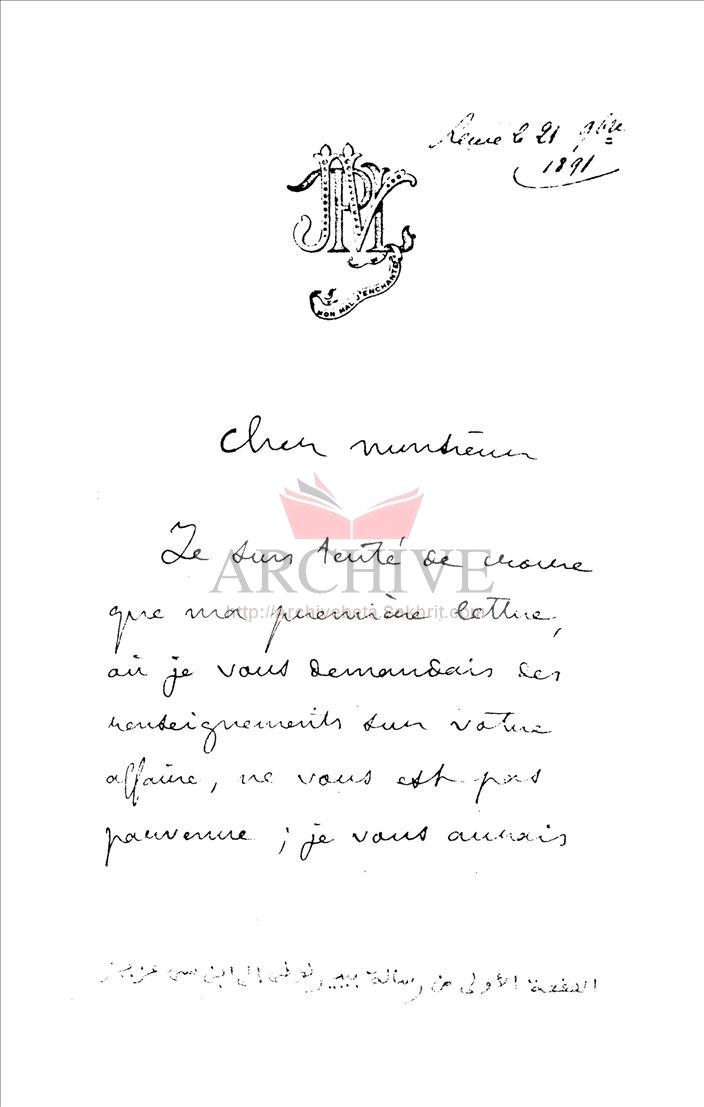 le 21 9bre
1891
MON MAL J'ENCHANTE
Cher monsieur
Je suis tenté de croire
ARCHIVE
que ma première lettre,
http://Archivebeta.Sakhrit.com
où je vous demandais des
renseignements sur votre
affaire, ne vous est pas
parvenue ; je vous aurais
الصفحة الأولى من رسالة بيير لوتي الى